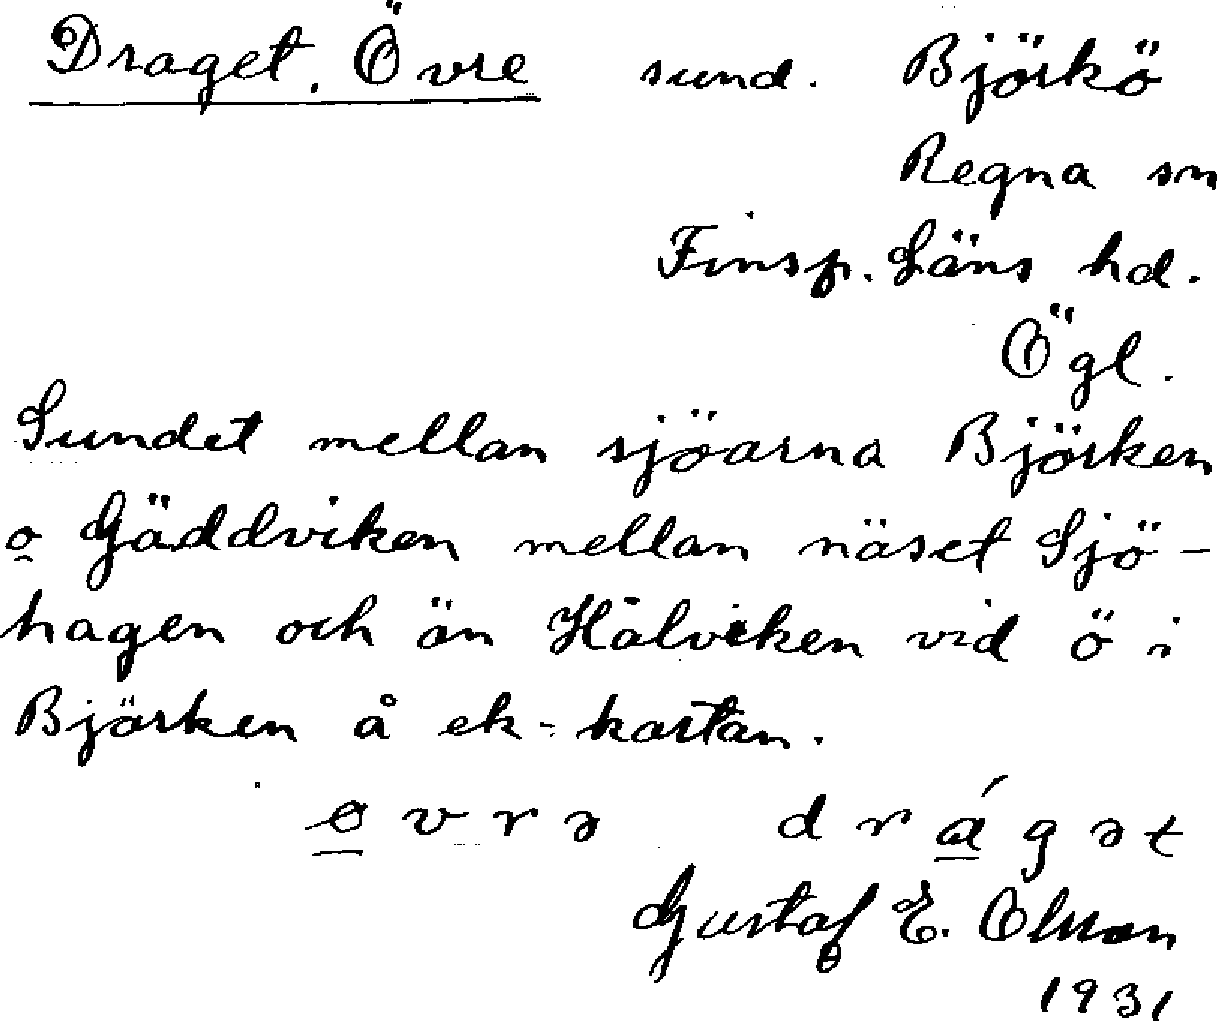 Draget. Övre sund. Björkö
Regna sn
Finsp. Läns hd.
Ögl.
Sundet mellan sjöarna Björken
o Gäddviken mellan näset Sjö-
hagen och än Hälviken vid ö i
Björken å ek-kartan.
ø v r ə d r á g ə t
Gustaf E. Olsson
1931